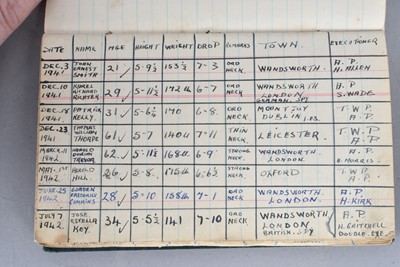 DATE NAME AGE HEIGHT WEIGHT DROP REMARKS TOWN. EXECUTIONER
DEC, 3 1941 JOHN ERNEST SMITH 21 ✓ 5-9½ 153½ 7-3 ORD NECK WANDSWORTH. A.P. H. ALLEN
DEC, 10 1941 KAREL RICHARD RICHTER 29 ✓ 5-11½ 172 lb 6-7 ORD NECK WANDSWORTH LONDON GERMAN SPY A.P. S. WADE
1941. PATRICK KELLY. 31 ✓ 5-6½ 140 6-8 ORD NECK MOUNTJOY DUBLIN, T.W.P. A.P.
DEC-23 1941 THOMAS WILLIAM THORPE 61 ✓ 5-7 140 lb 7-11 THIN NECK LEICESTER T.W.P A.P
MARCH-11 1942. HAROLD TREVOR 62 ✓ 5-11¾ 168 lb 6-9 STRONG NECK WANDSWORTH LONDON A.P. H. MORRIS
MAY-1st 1942 HAROLD HILL 26 ✓ 5-8 6-6½ STRONG NECK OXFORD T.W.P. A.P.
JUNE-25 1942. GORDON FREDERICK CUMMINS 28 ✓ 5-10 158 lb 7-1 ORD NECK WANDSWORTH LONDON. A.P. H. KIRK
JULY 7 1942. JOSE ESTELLA KEY. 34 ✓ 5-5½ 141 7-10 ORD NECK WANDSWORTH LONDON BRITISH-SPY A.P. H. CRITCHELL